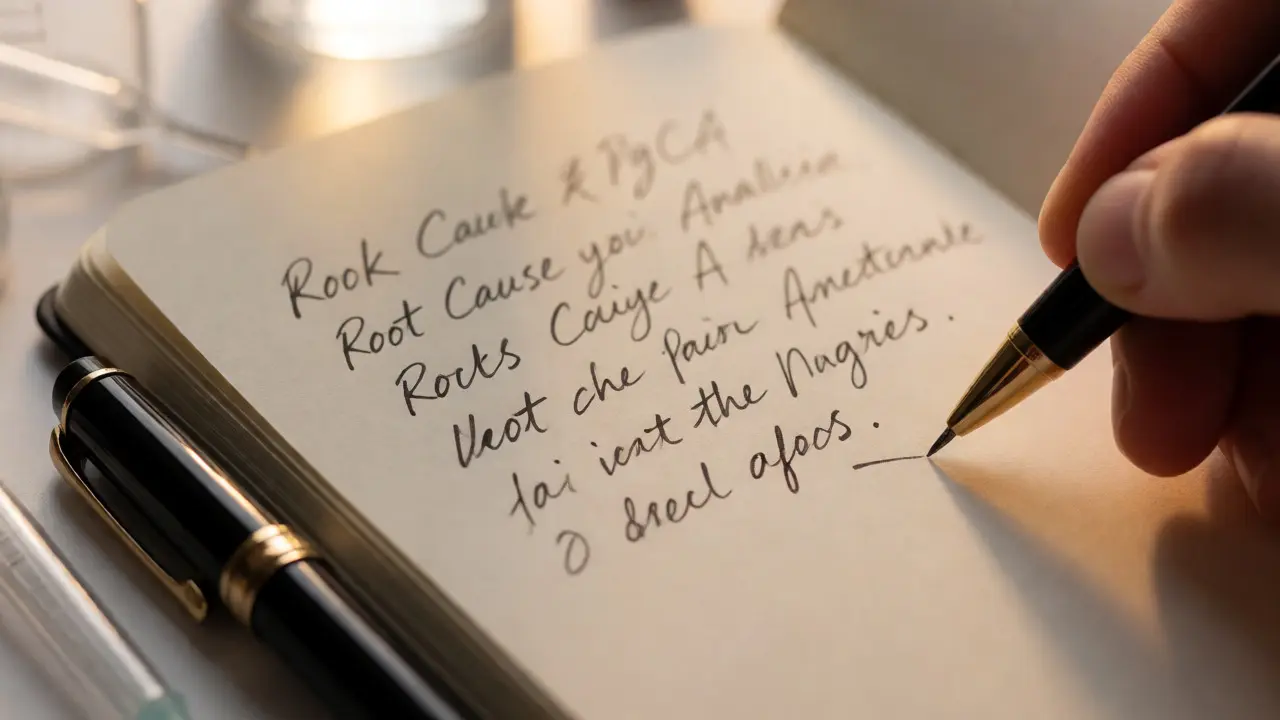 Rook Cauk & PgCA
Root Cause you Analisin
Rocks Caiye A sens
Veot che pain Ametunale
fai icat the Nagries.
O dsecl afocs.